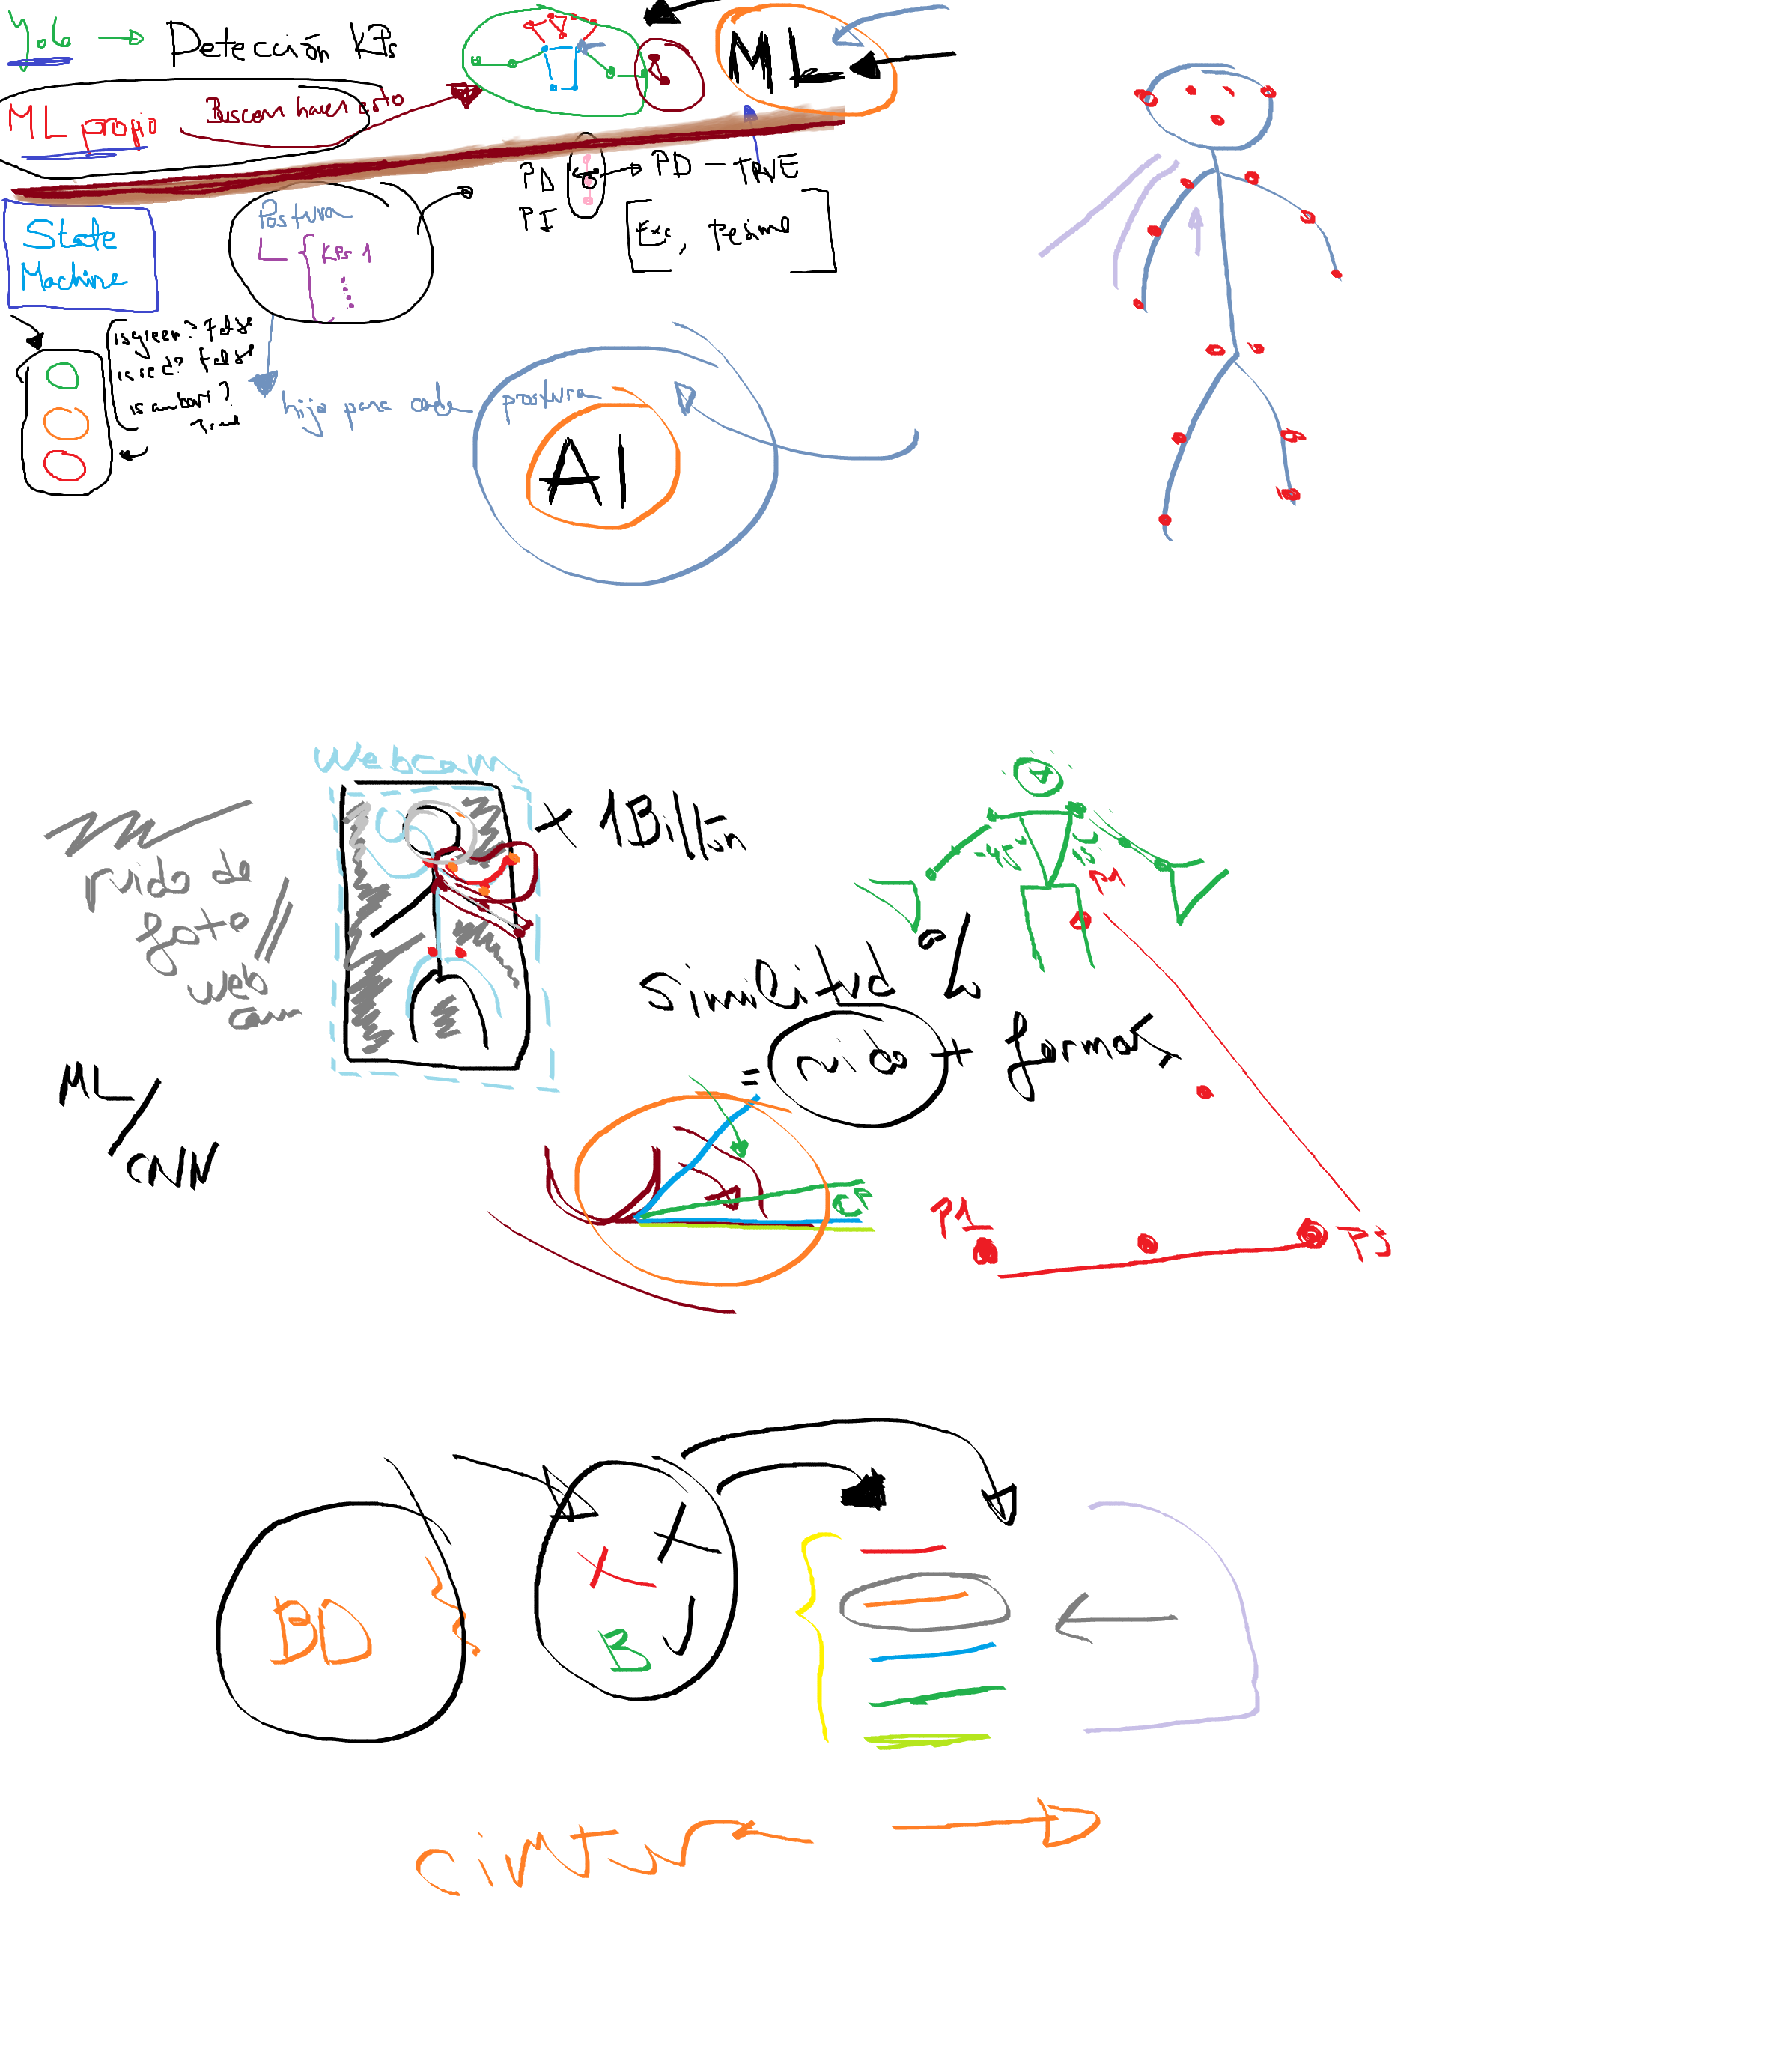 Yolo → Detección KPs
ML propio
Buscan hacer esto
ML
State
Machine
Postura
KPs 1
PD
PI
PD - TRUE
[Exc, Pésimo]
is green? False
is red? False
is ambar?
True
hijo para cada postura
AI
Webcam
+ 1 Billón
ruido de
foto
web
cam
ML/
CNN
-45°
45°
P1
similitud %
= ruido + formas
P1
P3
BD
B
cintura